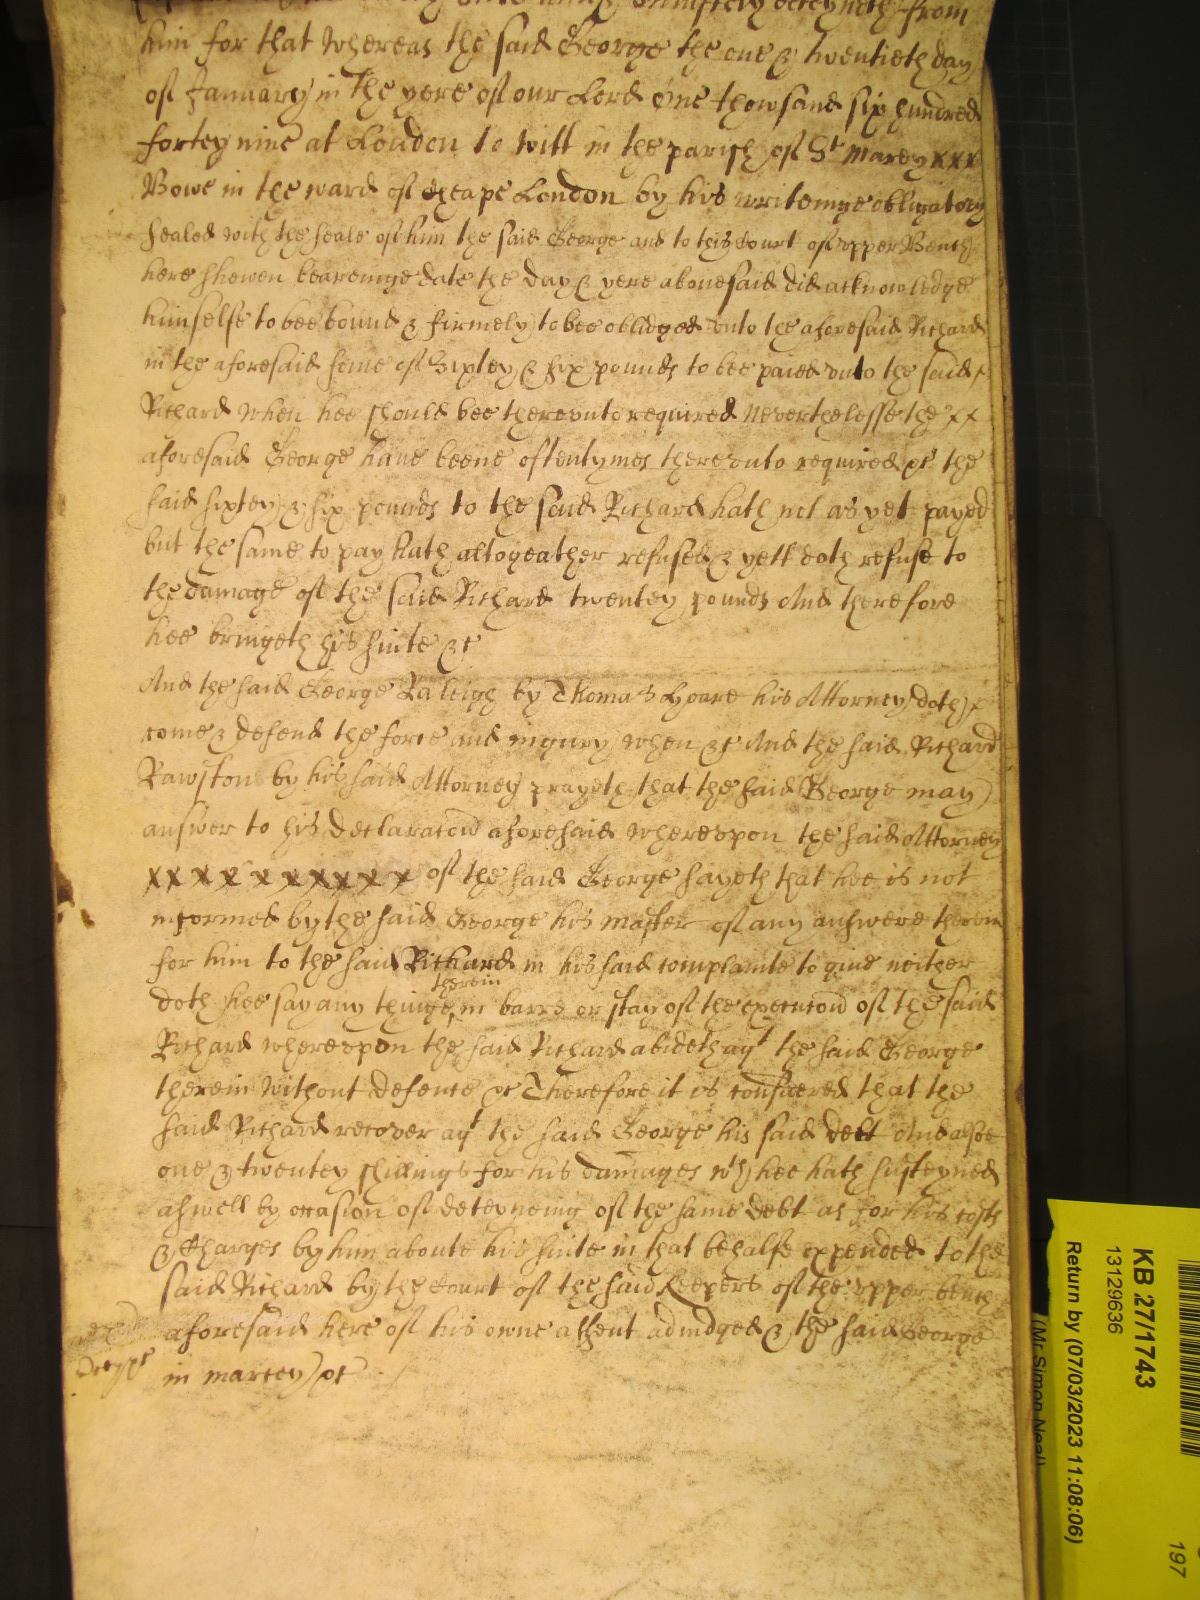 uniustly deteyneth from
him for that Whereas the said George the one & twentieth day
of January in the yere of our Lord One thowsand six hundred
fortey nine at London to witt in the parish of St Marey xxx
Bowe in the ward of Cheape London by his writeinge obligatory
sealed with the seale of him the said George and to this Court of vpper Bench
here shewen beareinge date the day & yere abovesaid did acknowledge
himselfe to bee bound & firmely to bee oblidged vnto the aforesaid Richard
in the aforesaid some of Sixtey & six pounds to bee paied vnto the said
Richard when hee should bee therevnto required Neverthelesse the xx
aforesaid George have beene oftentymes therevnto required &c the
said sixtey & six pounds to the said Richard hath not as yet payed
but the same to pay hath altogeather refused & yett doth refuse to
the damage of the said Richard twentey pounds And therefore
hee bringeth his suite &c
And the said George Raleigh by Thomas Hoare his Attorney doth x
come & defend the force and iniury when &c And the said Richard
Rawston by his said Attorney prayeth that the said George may
answer to his declaracon aforesaid Wherevpon the said Attorney
xxxxxxxxxx of the said George sayeth that hee is not
informed by the said George his master of any answere therein
for him to the said Richard in his said complainte to give neither
therein
doth hee say any thinge in barre or stay of the execucon of the said
Richard wherevpon the said Richard abideth agt the said George
therein without defence &c Therefore it is considered that the
said Richard recover agt the said George his said debt And alsoe
one & twentey shillings for his damages wch hee hath susteyned
aswell by occasion of deteyneing of the same debt as for his costs
& Charges by him aboute his suite in that behalfe expended to the
said Richard by the Court of the said Keepers of the vpper bench
aforesaid here of his owne assent adiudged & the said George
in marcey &c
KB 27/1743
13129636
Return by (07/03/2023 11:08:06)
(Mr Simon Neal)
197